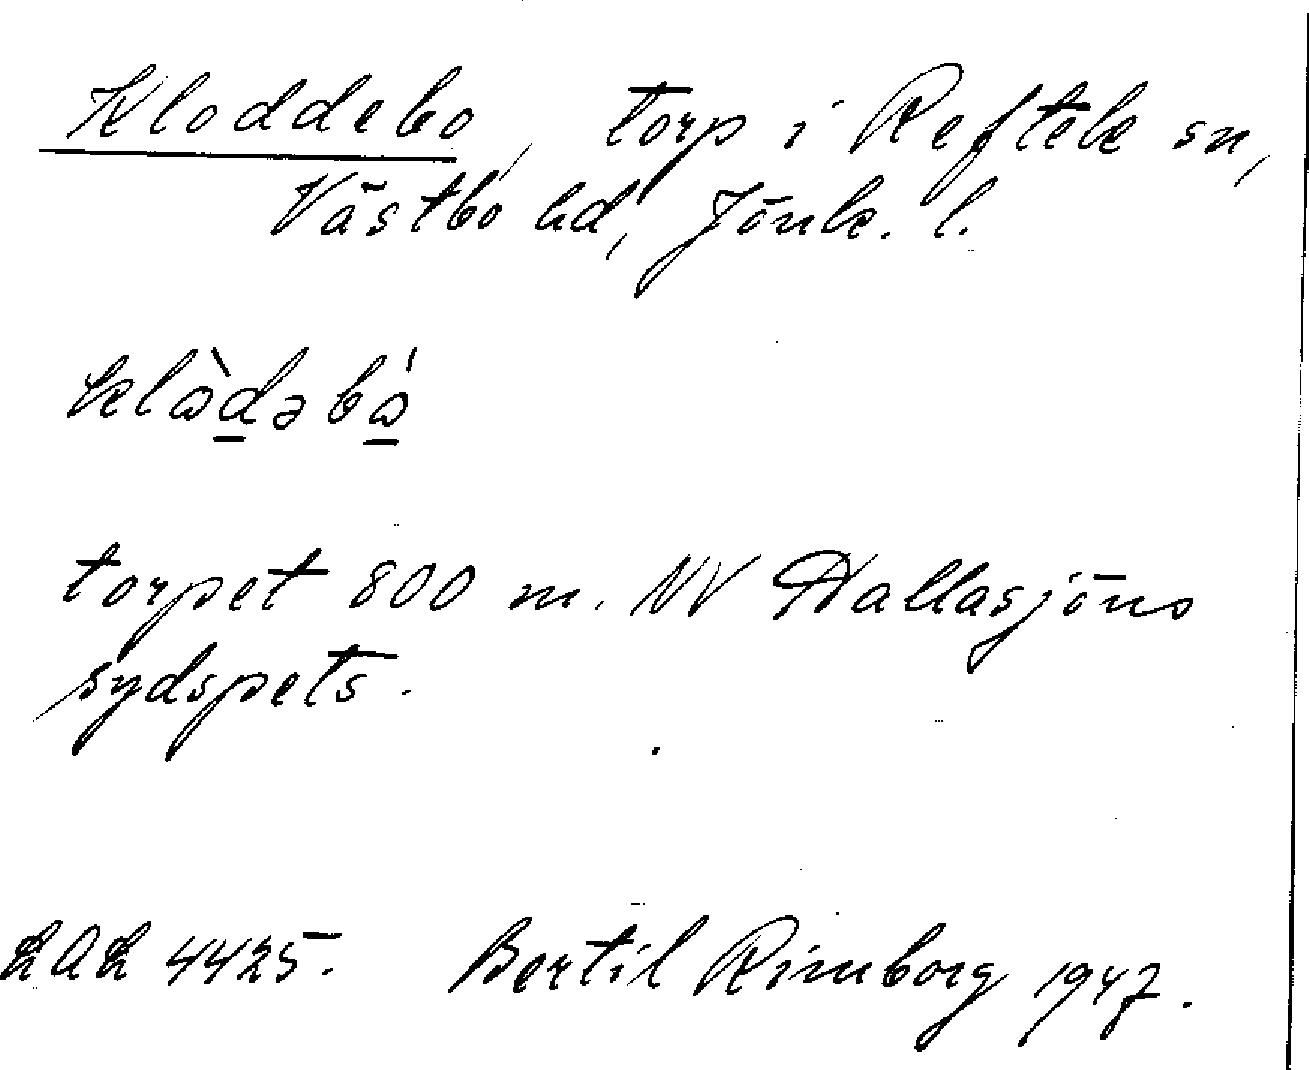 Kloddebo, torp i Reftele sn,
Västbo hd, Jönk. l.
klɷ̀dəbɷ́
torpet 800 m. NV Hallasjöns
sydspets.
LAL 4425. Bertil Rimborg 1947.